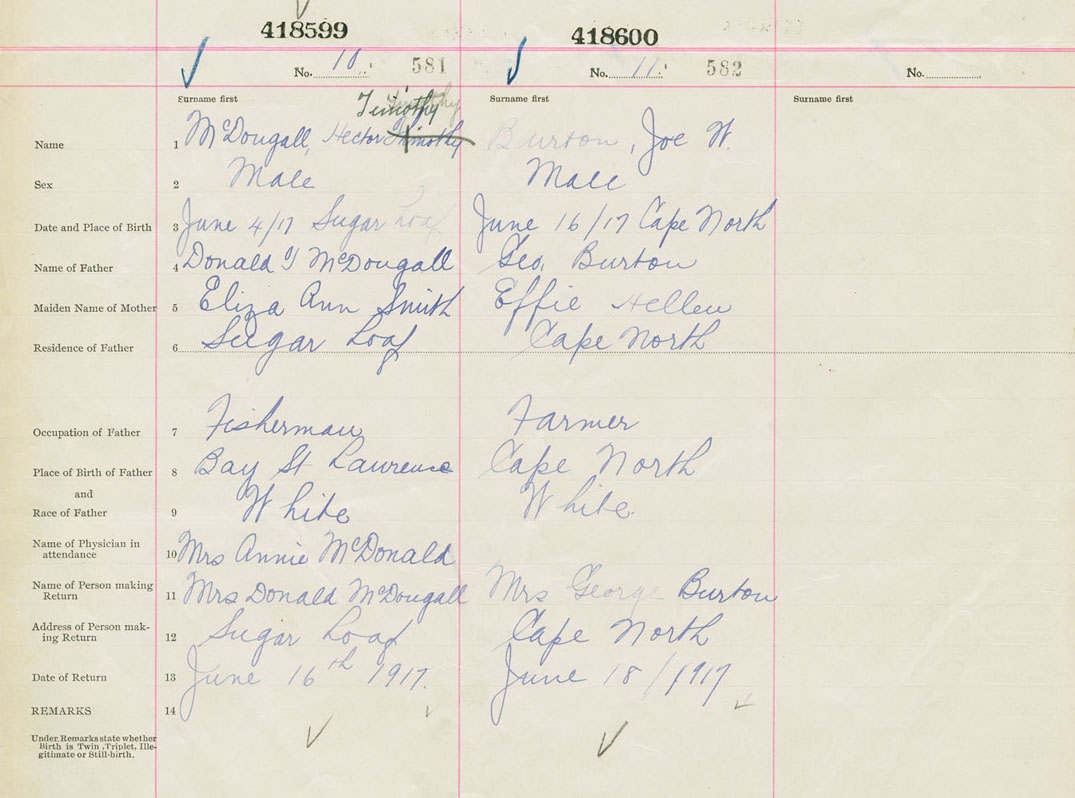 418599 418600
No. 10. 581 No. 11. 582 No.
Surname first Surname first Surname first
Timothy
Name 1 McDougall, Hector Thimothy Burton, Joe W.
Sex 2 Male Male
Date and Place of Birth 3 June 4/17 Sugar Loaf June 16/17 Cape North
Name of Father 4 Donald J McDougall Geo. Burton
Maiden Name of Mother 5 Eliza Ann Smith Effie Hellen
Residence of Father 6 Sugar Loaf Cape North
Occupation of Father 7 Fisherman Farmer
Place of Birth of Father 8 Bay St Laurence Cape North
and
Race of Father 9 White White
Name of Physician in
attendance 10 Mrs Annie McDonald
Name of Person making
Return 11 Mrs Donald McDougall Mrs George Burton
Address of Person mak-
ing Return 12 Sugar Loaf Cape North
Date of Return 13 June 16th 1917. June 18/1917
REMARKS 14
Under Remarks state whether
Birth is Twin, Triplet, Ille-
gitimate or Still-birth.